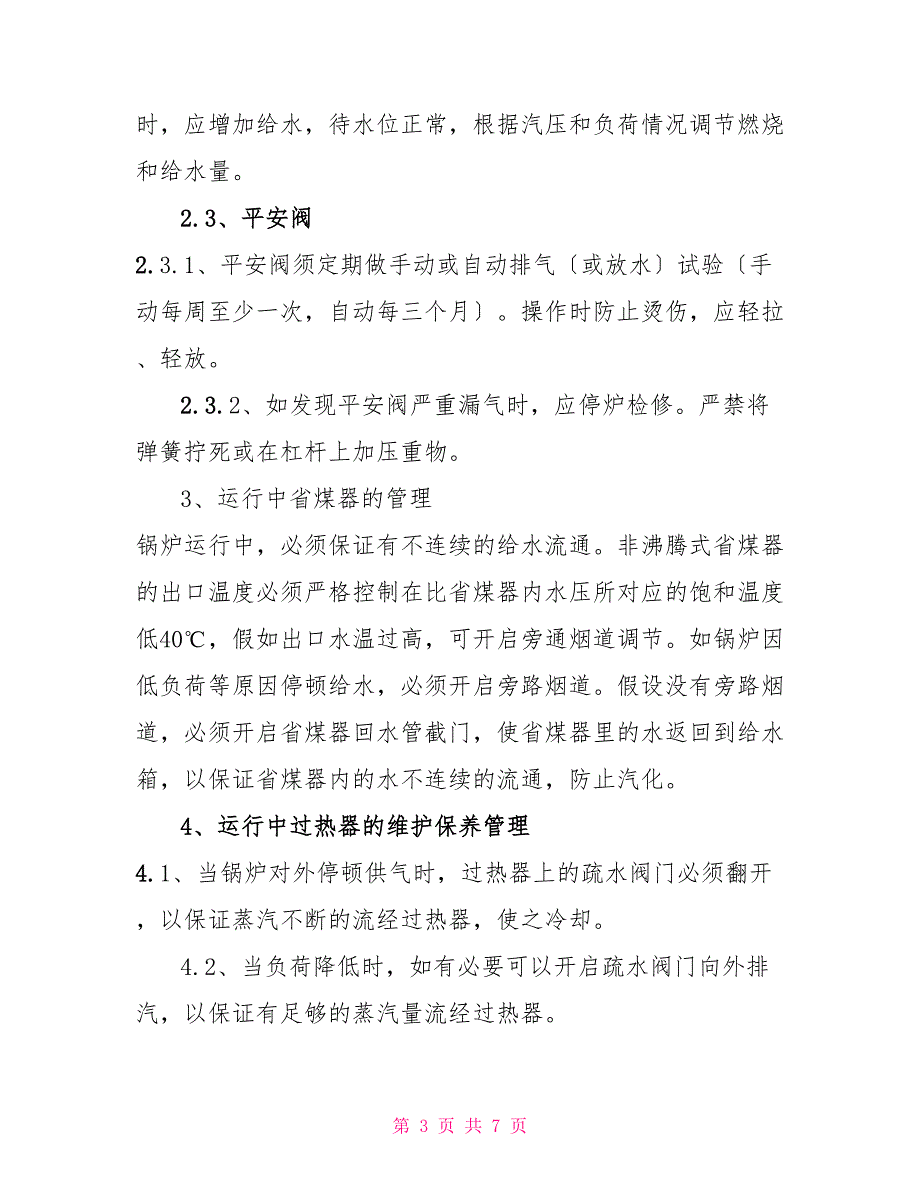 时，应增加给水，待水位正常，根据汽压和负荷情况调节燃烧
和给水量。
2.3、平安阀
2.3.1、平安阀须定期做手动或自动排气〔或放水〕试验〔手
动每周至少一次，自动每三个月〕。操作时防止烫伤，应轻拉
、轻放。
2.3.2、如发现平安阀严重漏气时，应停炉检修。严禁将
弹簧拧死或在杠杆上加压重物。
3、运行中省煤器的管理
锅炉运行中，必须保证有不连续的给水流通。非沸腾式省煤器
的出口温度必须严格控制在比省煤器内水压所对应的饱和温度
低40℃，假如出口水温过高，可开启旁通烟道调节。如锅炉因
低负荷等原因停顿给水，必须开启旁路烟道。假设没有旁路烟
道，必须开启省煤器回水管截门，使省煤器里的水返回到给水
箱，以保证省煤器内的水不连续的流通，防止汽化。
4、运行中过热器的维护保养管理
4.1、当锅炉对外停顿供气时，过热器上的疏水阀门必须翻开
，以保证蒸汽不断的流经过热器，使之冷却。
4.2、当负荷降低时，如有必要可以开启疏水阀门向外排
汽，以保证有足够的蒸汽量流经过热器。
第 3 页 共 7 页